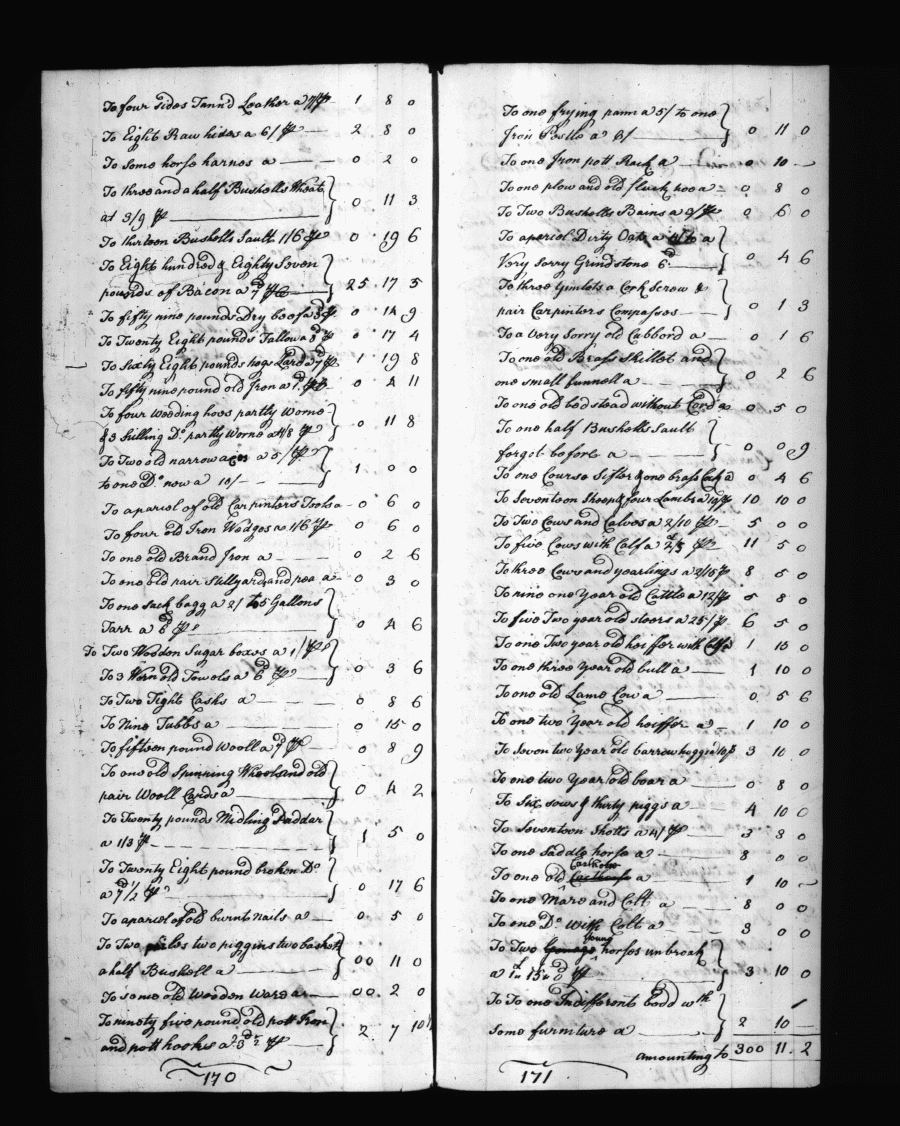 To four sides Tann'd Leather a 7/ ℔ 1 8 0
To Eight Raw hides a 6/ ℔ 2 8 0
To Some horse harnes a 0 2 0
To three and a half Bushells Wheat
at 3/9 ℔ 0 11 3
To thirteen Bushells Sault 1/6 ℔ 0 19 6
To Eight hundred & Eighty Seven
pounds of Bacon a 7d ℔ 25 17 5
To fifty nine pounds Dry beef a 3d ℔ 0 14 9
To Twenty Eight pounds Tallow a 8d ℔ 0 17 4
To Sixty Eight pounds hogs Lard a 7d ℔ 1 19 8
To fifty nine pound old Iron a 1d ℔ 0 4 11
To four Weeding hoes partly Worne
& 3 hilling Do partly Worne a 1/8 ℔ 0 11 8
To Two old narrow axes a 5/ ℔
to one Do new a 10/ 1 0 0
To a parcel of old Carpinters Tools a 0 6 0
To four old Iron Wedges a 1/6 ℔ 0 6 0
To one old Brand Iron a 0 2 6
To one old pair Stillyards and pea a 0 3 0
To one Sack bagg a 2/ to 5 Gallons
Tarr a 6d ℔ 0 4 6
To Two Wooden Sugar boxes a 1/ ℔
To 3 Worn old Towels a 6d ℔ 0 3 6
To Two Tight Casks a 0 8 6
To Nine Tubbs a 0 15 0
To fifteen pound Wooll a 7d ℔ 0 8 9
To one old Spinning Wheel and old
pair Wooll Cards a 0 4 2
To Twenty pounds Midling Padder
a 1/3 ℔ 1 5 0
To Twenty Eight pound broken Do
a 7d 1/2 ℔ 0 17 6
To a parcel of old burnt nails a 0 5 0
To Two piles two piggins two baskets
a half Bushell a 00 11 0
To some old Wooden Ware a 00 2 0
To ninety five pound old pott Iron
and pott hooks a ℔ 2 7 10
170
To one frying pann a 5/ to one
Iron Pestle a 6/ 0 11 0
To one Iron pott Rack a 0 10
To one plow and old fluck hoe a 0 8 0
To Two Bushells Bains a 3/ ℔ 0 6 0
To a parcel Dirty Oats a to a
Very Sorry Grindstone 6d 0 4 6
To three Gimlets a Cork Screw &
pair Carpinters Compasses 0 1 3
To a Very Sorry old Cubbord a 0 1 6
To one old Brass Skillet and
one small funnell a 0 2 6
To one old bedstead without Cord a 0 5 0
To one half Bushells Sault
forgot before a 0 0 9
To one Course Sifter & one brass Cock a 0 4 6
To Seventeen Sheep & four Lambs a 10/ ℔ 10 10 0
To Two Cows and Calves a 2/10 ℔ 5 0 0
To five Cows with Calf a 2/5 ℔ 11 5 0
To three Cows and yearlings a 2/15 ℔ 8 5 0
To nine one Year old Cattle a 12/ ℔ 5 8 0
To five Two year old steers a 25/ ℔ 6 5 0
To one Two year old heiffer with Calf a 1 15 0
To one three Year old bull a 1 10 0
To one old Lame Cow a 0 5 6
To one two Year old heiffer a 1 10 0
To Seven two Year old barrow hoggs a 10/ ℔ 3 10 0
To one two Year old boar a 0 8 0
To Six sows & thirty piggs a 4 10 0
To Seventeen Shotts a 4/ ℔ 3 8 0
To one Saddle horse a 8 0 0
To one old a 1 10
To one Mare and Colt a 8 0 0
To one Do With Colt a 3 0 0
To Two Young horses unbroak
a 1 15 0 ℔ 3 10 0
To To one Indifferent bedd wth
Some furniture a 2 10
amounting to 300 11 2
171